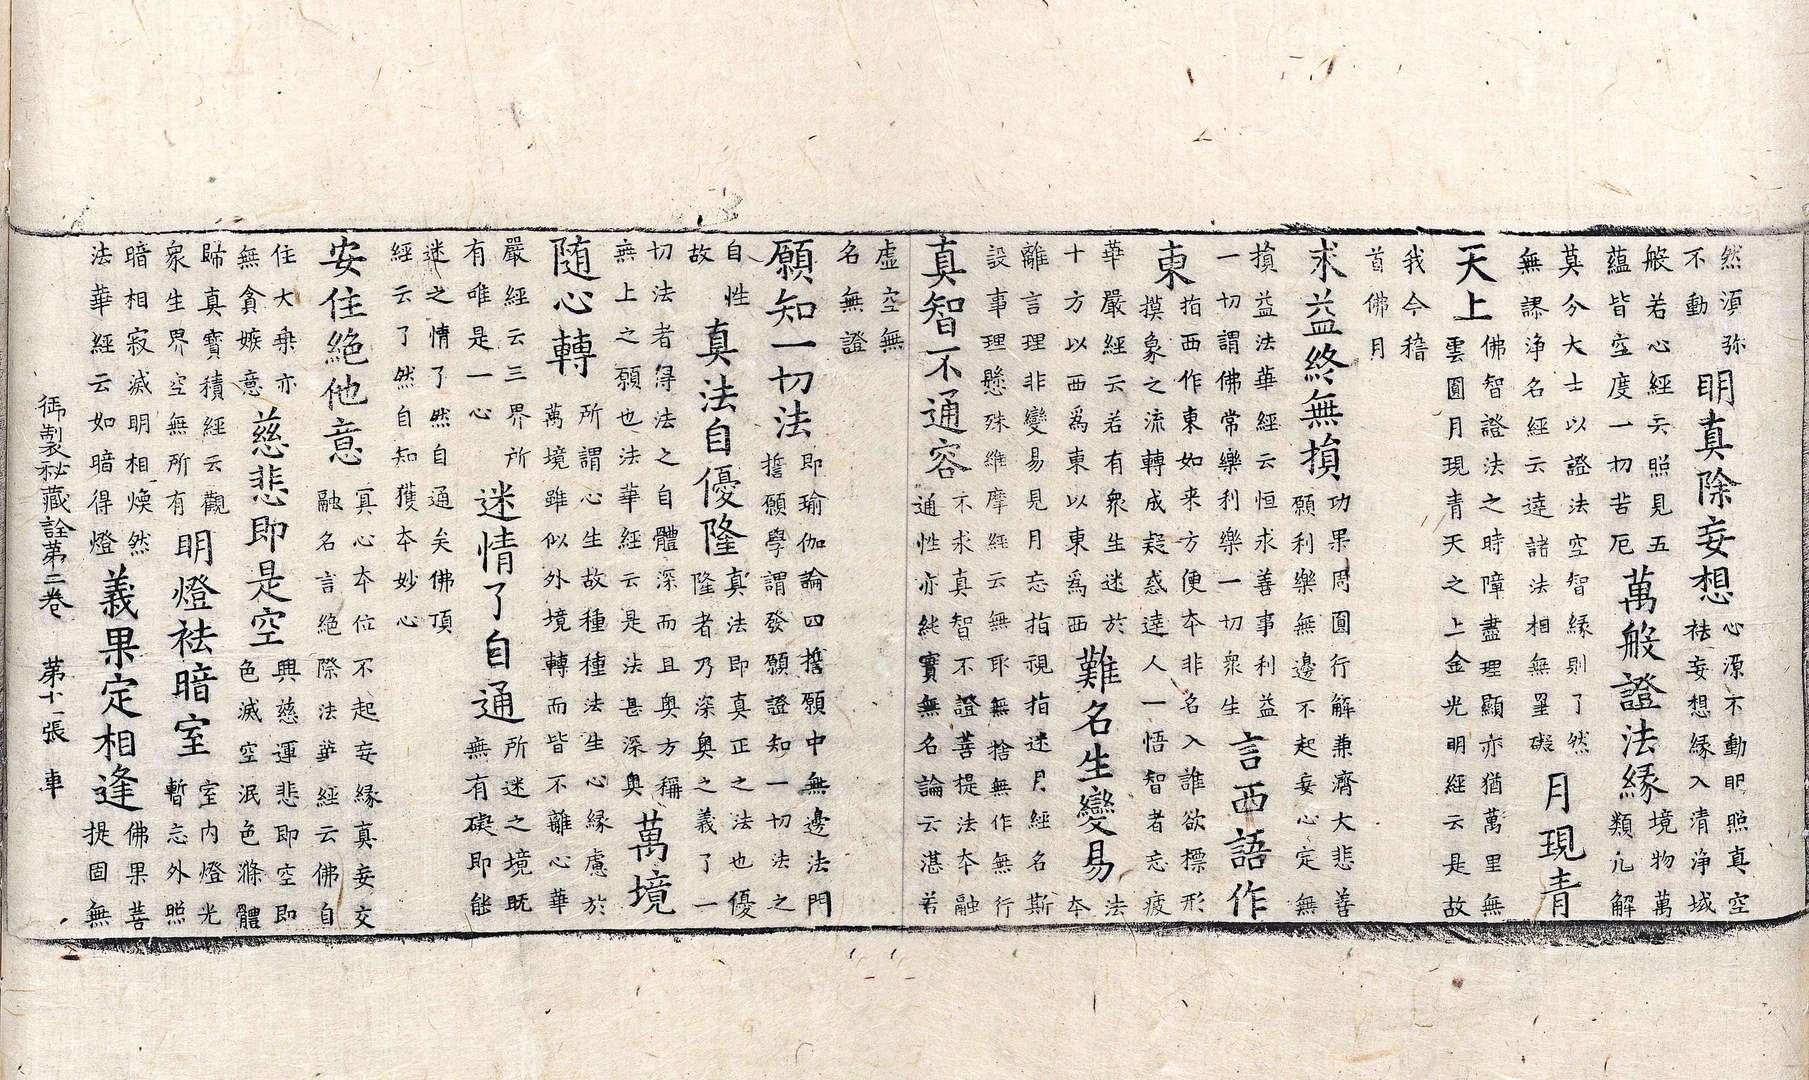 然湏弥
不動
明真除妄想
心源不動眀照真空
祛妄想緣入清淨域
般若心經云照見五
蘊皆空度一切苦厄
萬般證法緣
境物萬
類凢解
莫分大士以證法空智緣則了然
無浄名經云達諸法相無罣礙
月現青
天上
佛智證法之時障盡理顯亦猶萬里無
雲圓月現青天之上金光明經云是故
我今稽
首佛月
求益終無損
功果周圓行解兼濟大悲善
願利樂無邊不起妄心定無
損益法華經云恒求善事利益
一切謂佛常樂利樂一切衆生
言西語作
東
指西作東如来方便本非名入誰欲標形
摸象之流轉成疑惑達人一悟智者忘疲
華嚴經云若有衆生迷於
十方以西爲東以東爲西
難名生變易
法
本
離言理非變易見月忘指視指迷月經名斯
設事理懸殊維摩經云無耶無捨無作無行
真智不通容
不求真智不證菩提法本融
通性亦純實無名論云湛若
虛空無
名無證
願知一切法
即瑜伽論四誓願中無邊法門
誓願學謂發願證知一切法之
自性
故
真法自優隆
真法即真正之法也優
隆者乃深奥之義了一
切法者得法之自體深而且奥方稱
無上之願也法華經云是法甚深奥
萬境
随心轉
所謂心生故種種法生心緣慮於
萬境雖似外境轉而皆不離心華
嚴經云三界所
有唯是一心
迷情了自通
所迷之境既
無有礙即能
迷之情了然自通矣佛頂
經云了然自知獲本妙心
安住絶他意
真心本位不起妄緣真妄交
融名言絕際法華經云佛自
住大乗亦
無貪嫉意
慈悲即是空
興慈運悲即空即
色滅空泯色滌體
歸真寳積經云觀
衆生界空無所有
明燈祛暗室
室内燈光
暫忘外照
暗相寂滅明相煥然
法華經云如暗得燈
義果定相逢
佛果菩
提固無
御製秘藏詮第二卷 第十一張 車